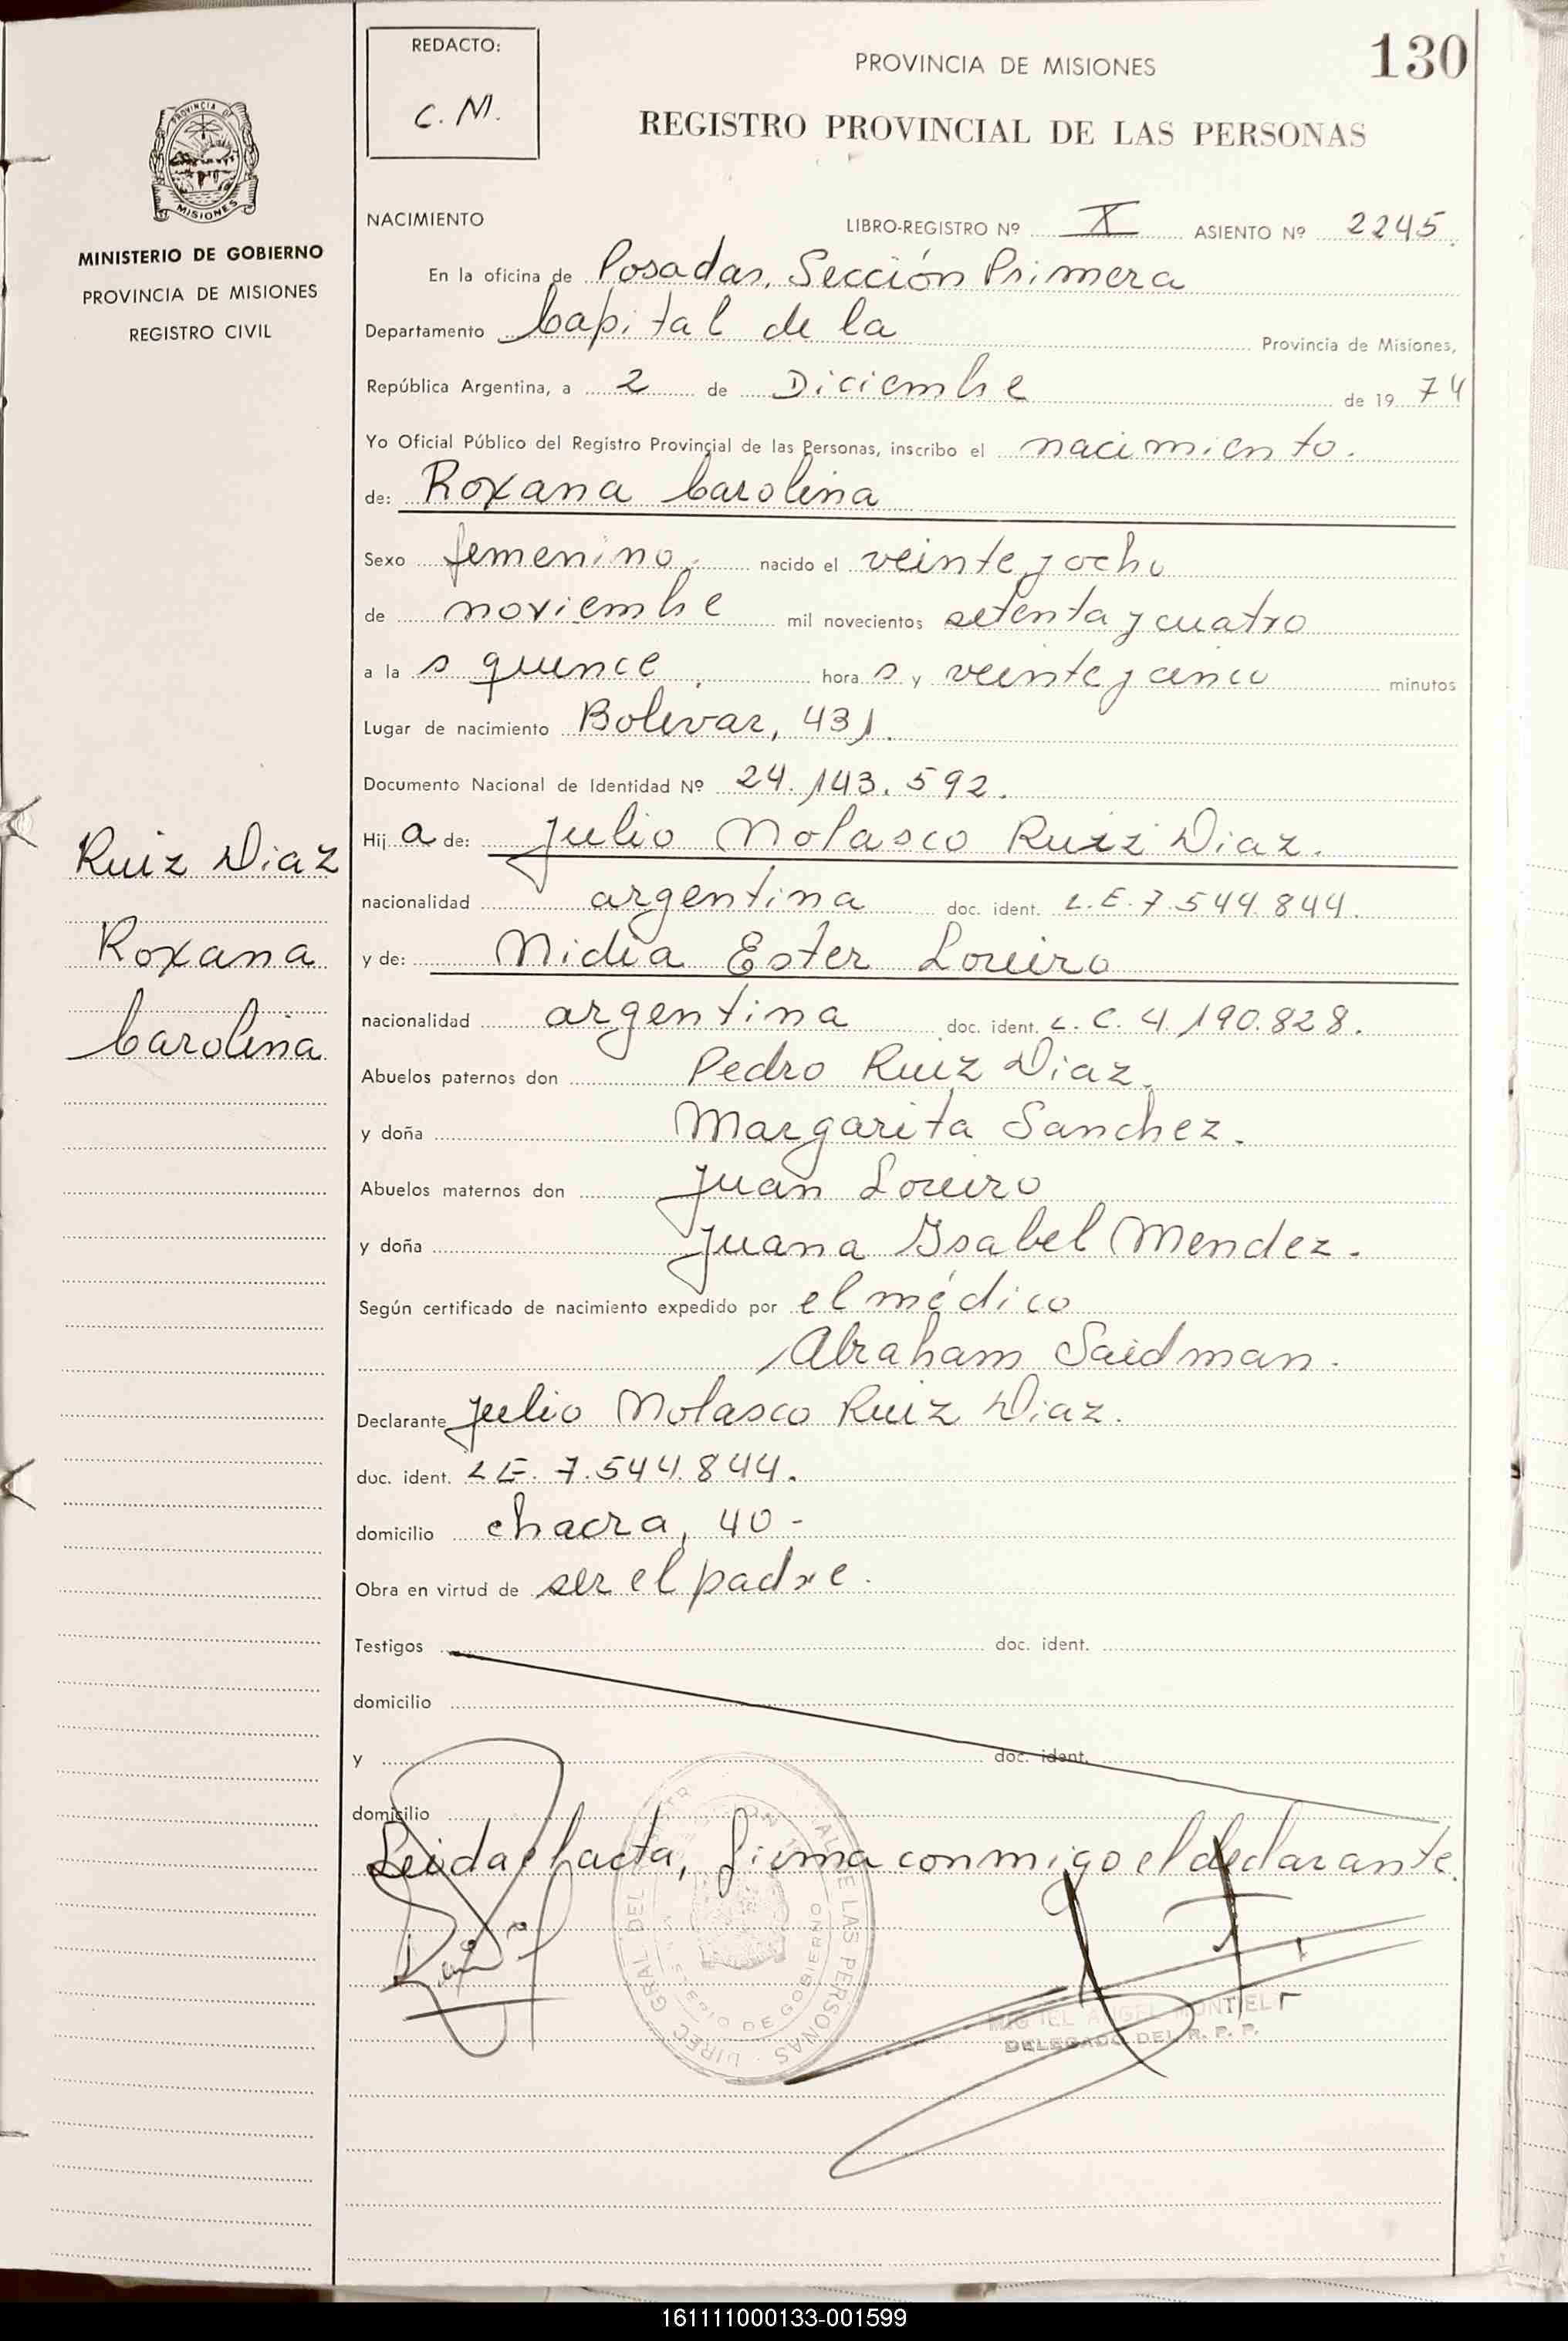 REDACTO:
C. M.
PROVINCIA DE MISIONES
130
REGISTRO PROVINCIAL DE LAS PERSONAS
PROVINCIA DE
MISIONES
MINISTERIO DE GOBIERNO
PROVINCIA DE MISIONES
REGISTRO CIVIL
Ruiz Diaz
Roxana
Carolina
NACIMIENTO LIBRO-REGISTRO Nº X ASIENTO Nº 2245
En la oficina de Posadas, Sección Primera
Departamento Capital de la Provincia de Misiones,
República Argentina, a 2 de Diciembre de 19 74
Yo Oficial Público del Registro Provincial de las Personas, inscribo el nacimiento.
de: Roxana Carolina
Sexo femenino. nacido el veinte y ocho
de noviembre mil novecientos setenta y cuatro
a la s quince hora s y veinte y cinco minutos
Lugar de nacimiento Bolivar, 431.
Documento Nacional de Identidad Nº 24.143.592.
Hij a de: Julio Nolasco Ruiz Diaz.
nacionalidad argentina doc. ident. L.E. 7.544.844.
y de: Nidia Ester Loueiro
nacionalidad argentina doc. ident. L.C. 4.190.828.
Abuelos paternos don Pedro Ruiz Diaz.
y doña Margarita Sanchez.
Abuelos maternos don Juan Loueiro
y doña Juana Ysabel Mendez.
Según certificado de nacimiento expedido por el médico
Abraham Saidman.
Declarante Julio Nolasco Ruiz Diaz.
doc. ident. L.E. 7.544.844.
domicilio chacra, 40 -
Obra en virtud de ser el padre.
Testigos doc. ident.
domicilio
y doc. ident.
domicilio
Leida el acta, firma conmigo el declarante.
MIGUEL ANGEL MONTIEL
DELEGADO DEL R. P. P.
161111000133-001599